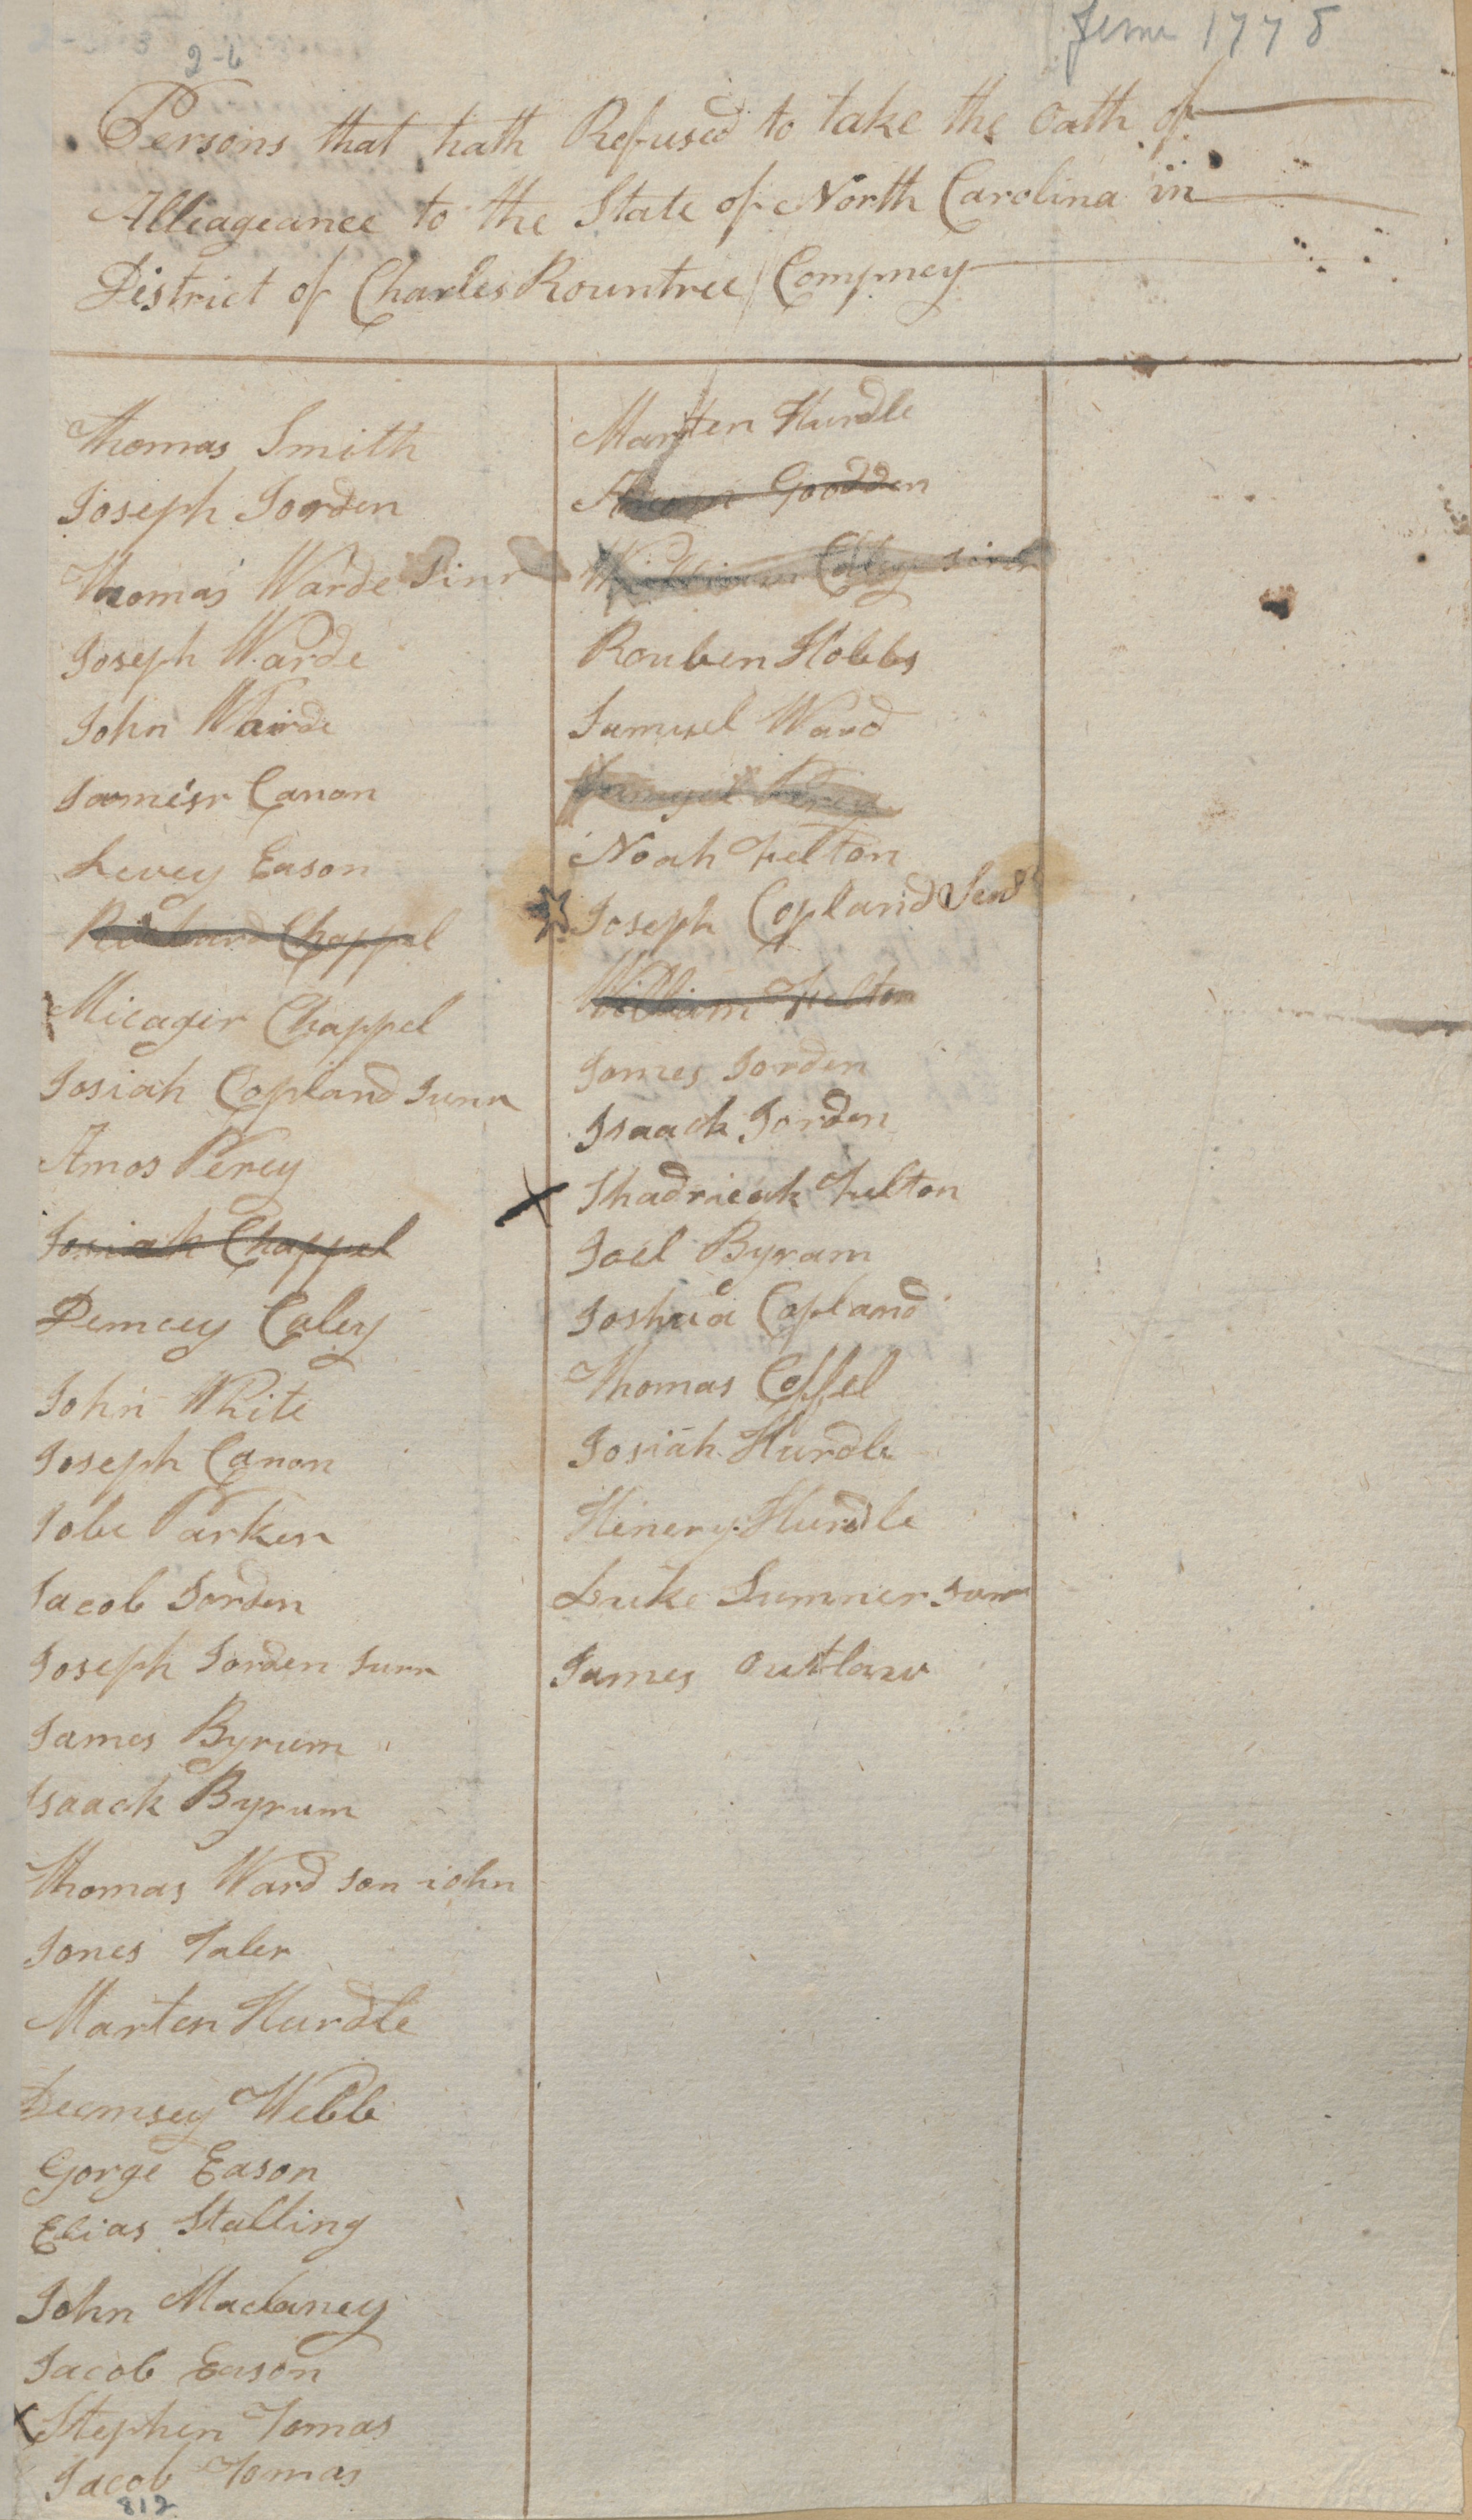 June 1778
2-6
Persons that hath Refused to take the Oath of
Alleageance to the State of North Carolina in
District of Charles Rountree Compney
Thomas Smith
Joseph Jorden
Thomas Warde Sinr
Joseph Warde
John Wairde
Canon
Levey Eason
Richard Chappel
Micager Chappel
Josiah Copland Junr
Amos Perey
Josiah Chappel
Demcey Caley
John White
Joseph Canon
Jobe Parker
Jacob Jorden
Joseph Jorden Junr
James Byrum
Isaack Byrum
Thomas Ward son iohn
Jones Taler
Marten Hurdle
Deemsey Webb
Gorge Eason
Elias Stalling
John Maclaney
Jacob Eason
x Stephen Tomas
Jacob Tomas
812
Marten Hurdle
Goodden
William
Rouben Hobbs
Samuel Ward
Noah Felton
Joseph Copland
William Felton
James Jorden
Isaack Jorden
x Shadrieck Felton
Joel Byram
Joshua Copland
Thomas Coffel
Josiah Hurdle
Hinery Hurdle
Luke Sumner
James Outlaw